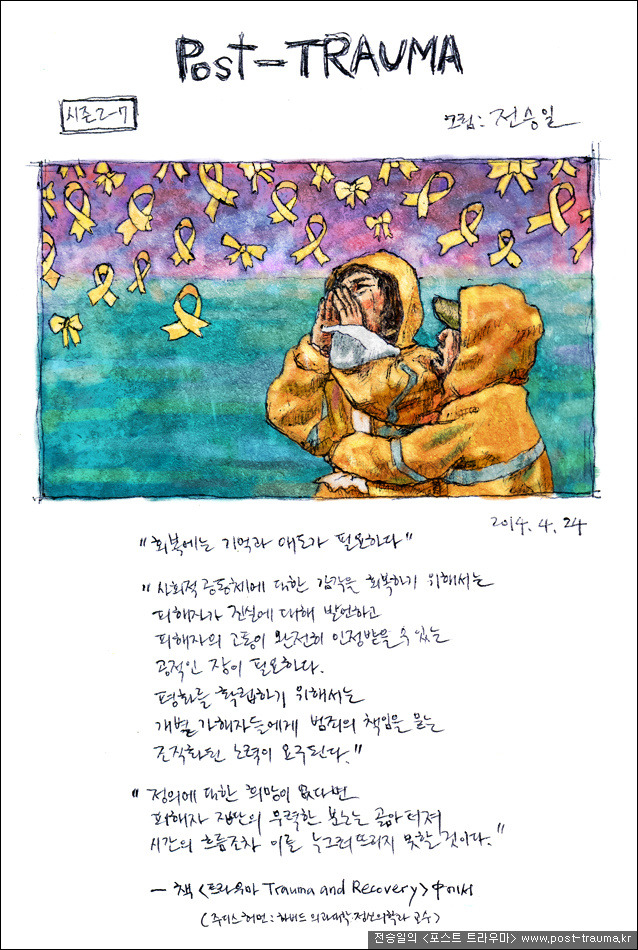 Post-TRAUMA
시즌2-7
그림: 전승일
2014. 4. 24
"회복에는 기억과 애도가 필요하다"
"사회적 공동체에 대한 감각을 회복하기 위해서는
피해자가 진실에 대해 발언하고
피해자의 고통이 완전히 인정받을 수 있는
공적인 장이 필요하다.
평화를 확립하기 위해서는
개별 가해자들에게 범죄의 책임을 묻는
조직화된 노력이 요구된다."
"정의에 대한 희망이 없다면
피해자 집단의 무력한 분노는 곪아 터져
시간의 흐름조차 이를 누그러뜨리지 못할 것이다."
— 책 <트라우마 Trauma and Recovery> 中에서
(주디스 허먼 : 하버드 의과대학 정신의학과 교수)
전승일의 <포스트 트라우마> www.post-trauma.kr